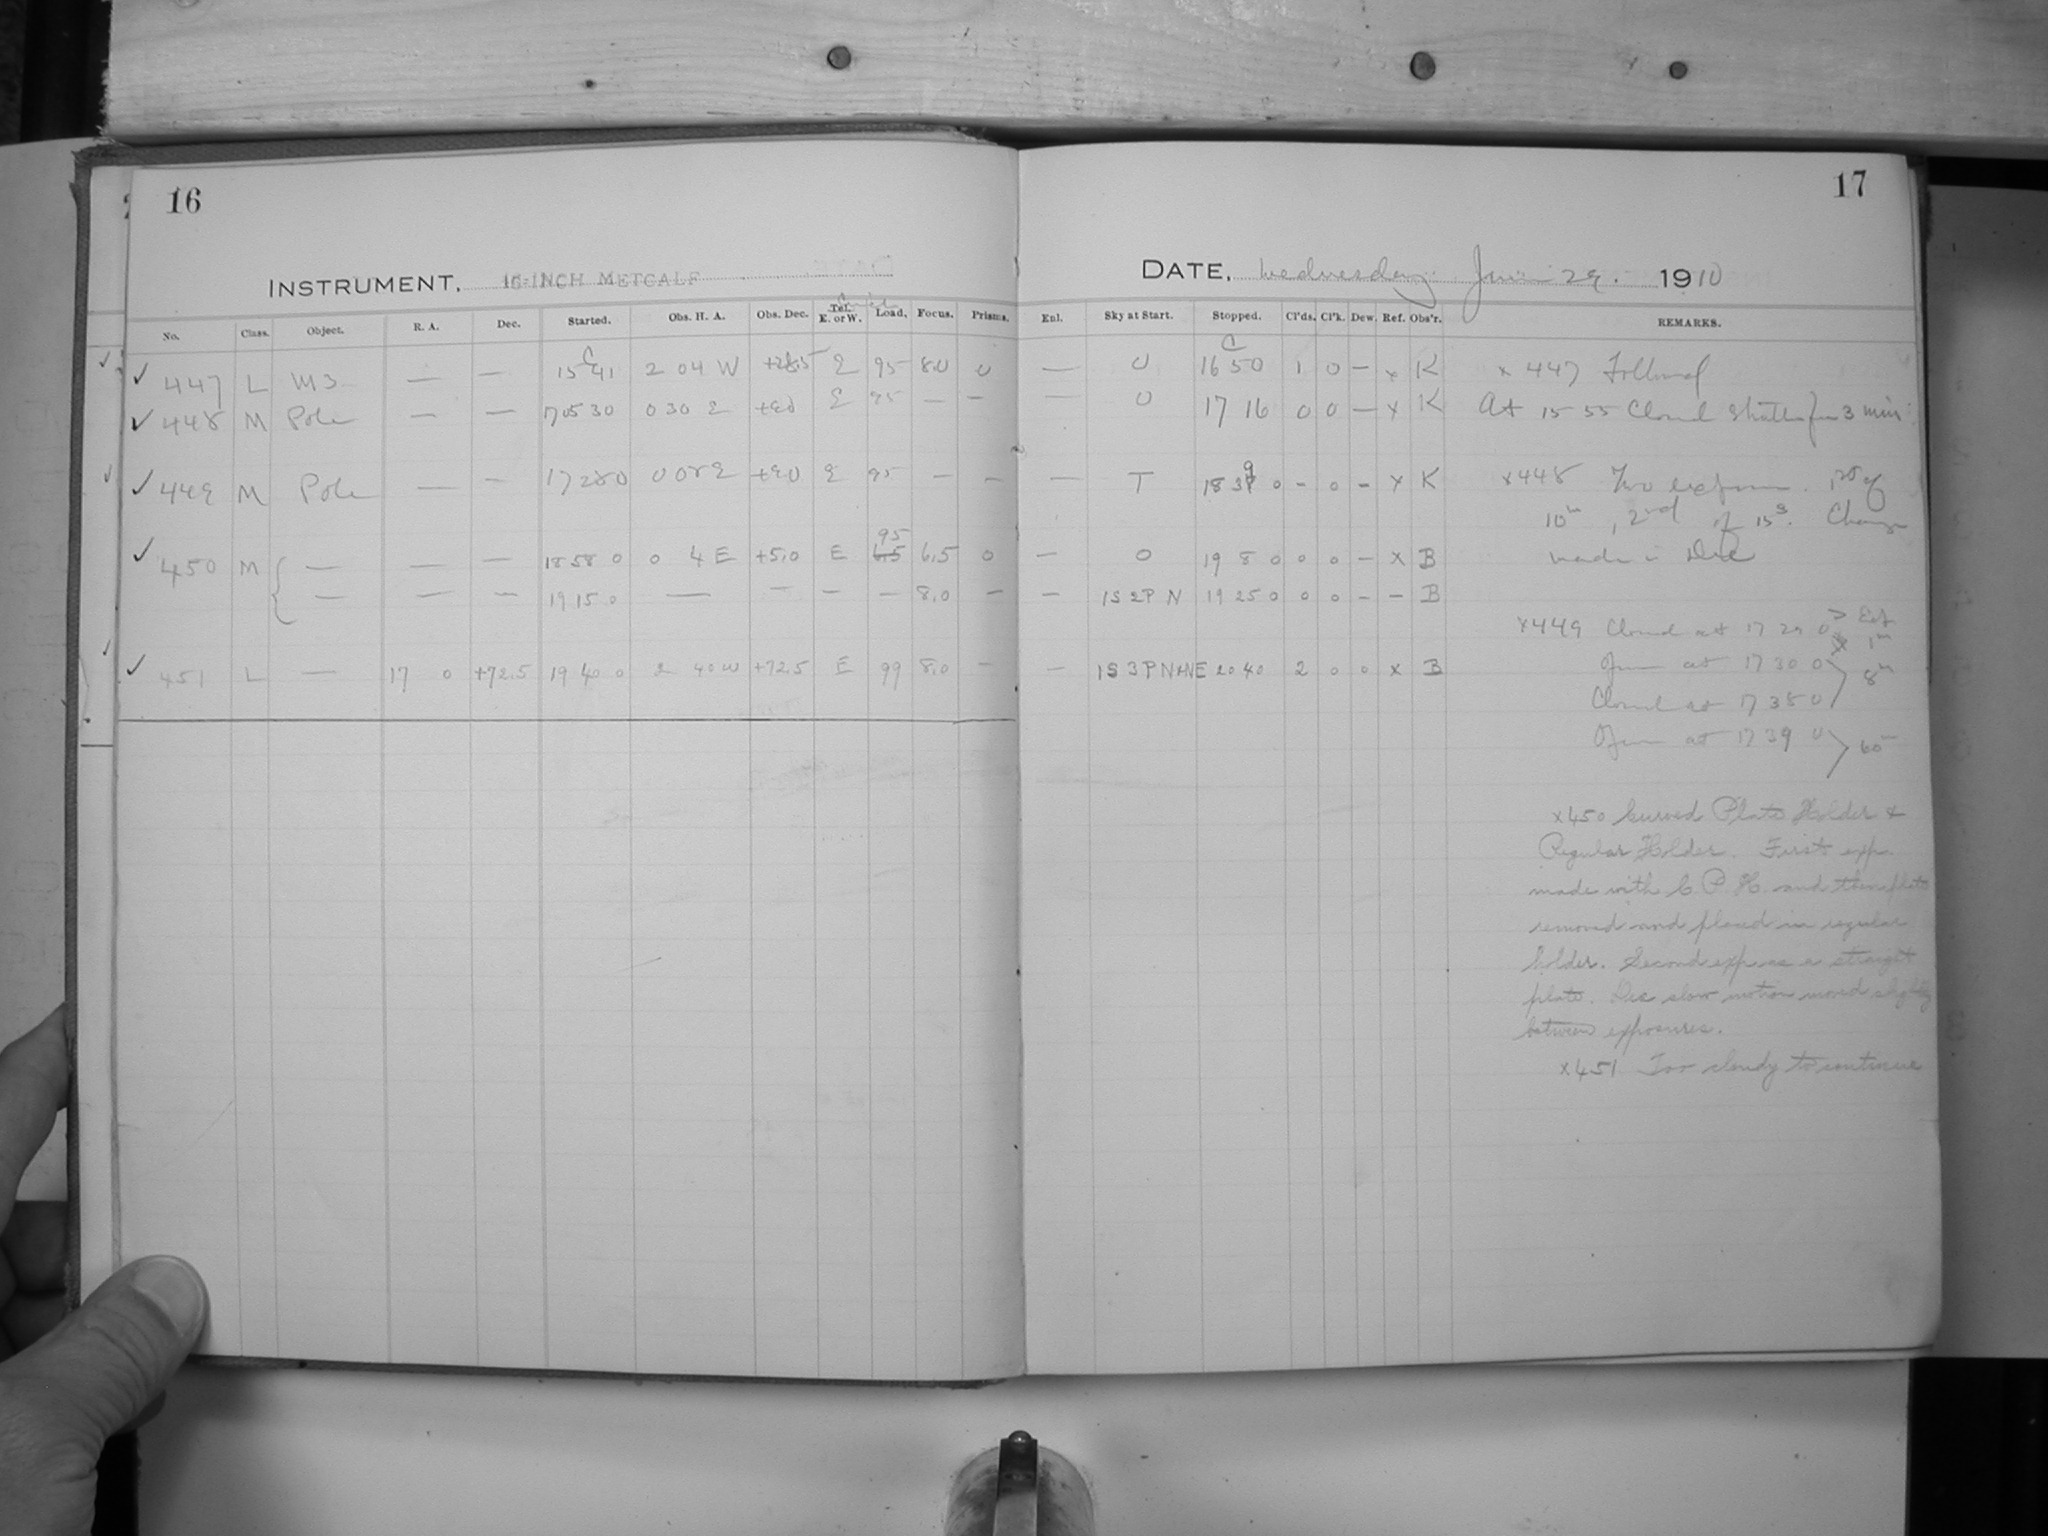 16
INSTRUMENT. 16-INCH METCALF
No. Class. Object. R. A. Dec. Started. Obs. H. A. Obs. Dec. Tel. E. or W. Load. Focus. Prisms.
447 L M3 — — 15 41 2 04 W +28.5 E 95 8.0 0
448 M Pole — — 17 05 30 0 30 E +90 E 95 — —
449 M Pole — — 17 28 0 0 08 E +90 E 95 — —
95
450 M — — — 18 58 0 0 4 E +5.0 E 6.5 6.5 0
— — — 19 15 0 — — — — 8.0 —
451 L — 17 0 +72.5 19 40 0 2 40 W +72.5 E 99 8.0 —
17
DATE, Wednesday June 29. 1910
Enl. Sky at Start. Stopped. Cl'ds. Cl'k. Dew. Ref. Obs'r. REMARKS.
— 0 16 50 1 0 — x K x 447 Followed
— 0 17 16 0 0 — x K At 15 55 Closed shutter for 3 min
— T 18 39 0 - 0 - x K x448 Two exposures. 1st of
10m, 2nd of 15s. Change
— 0 19 8 0 0 0 — x B made in Dec
— 1S 2P N 19 25 0 0 0 - — B
x449 Closed at 17 29 0 > Exp 1m
Open at 17 30 0
8m
Closed at 17 38 0
Open at 17 39 0 60m
— 1S 3P N+NE 20 40 2 0 0 x B
x450 Curved Plate Holder +
Regular Holder. First exp.
made with C. P. H. and then plate
removed and placed in regular
holder. Second exp as a straight
plate. Dec slow motion moved slightly
between exposures.
x451 Too cloudy to continue